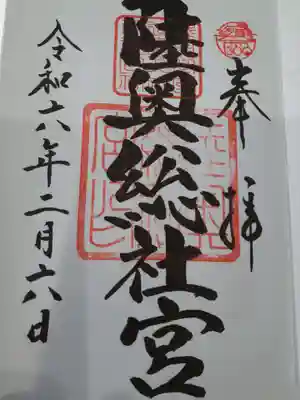 奉拝
陸奥総社宮
令和六年二月六日